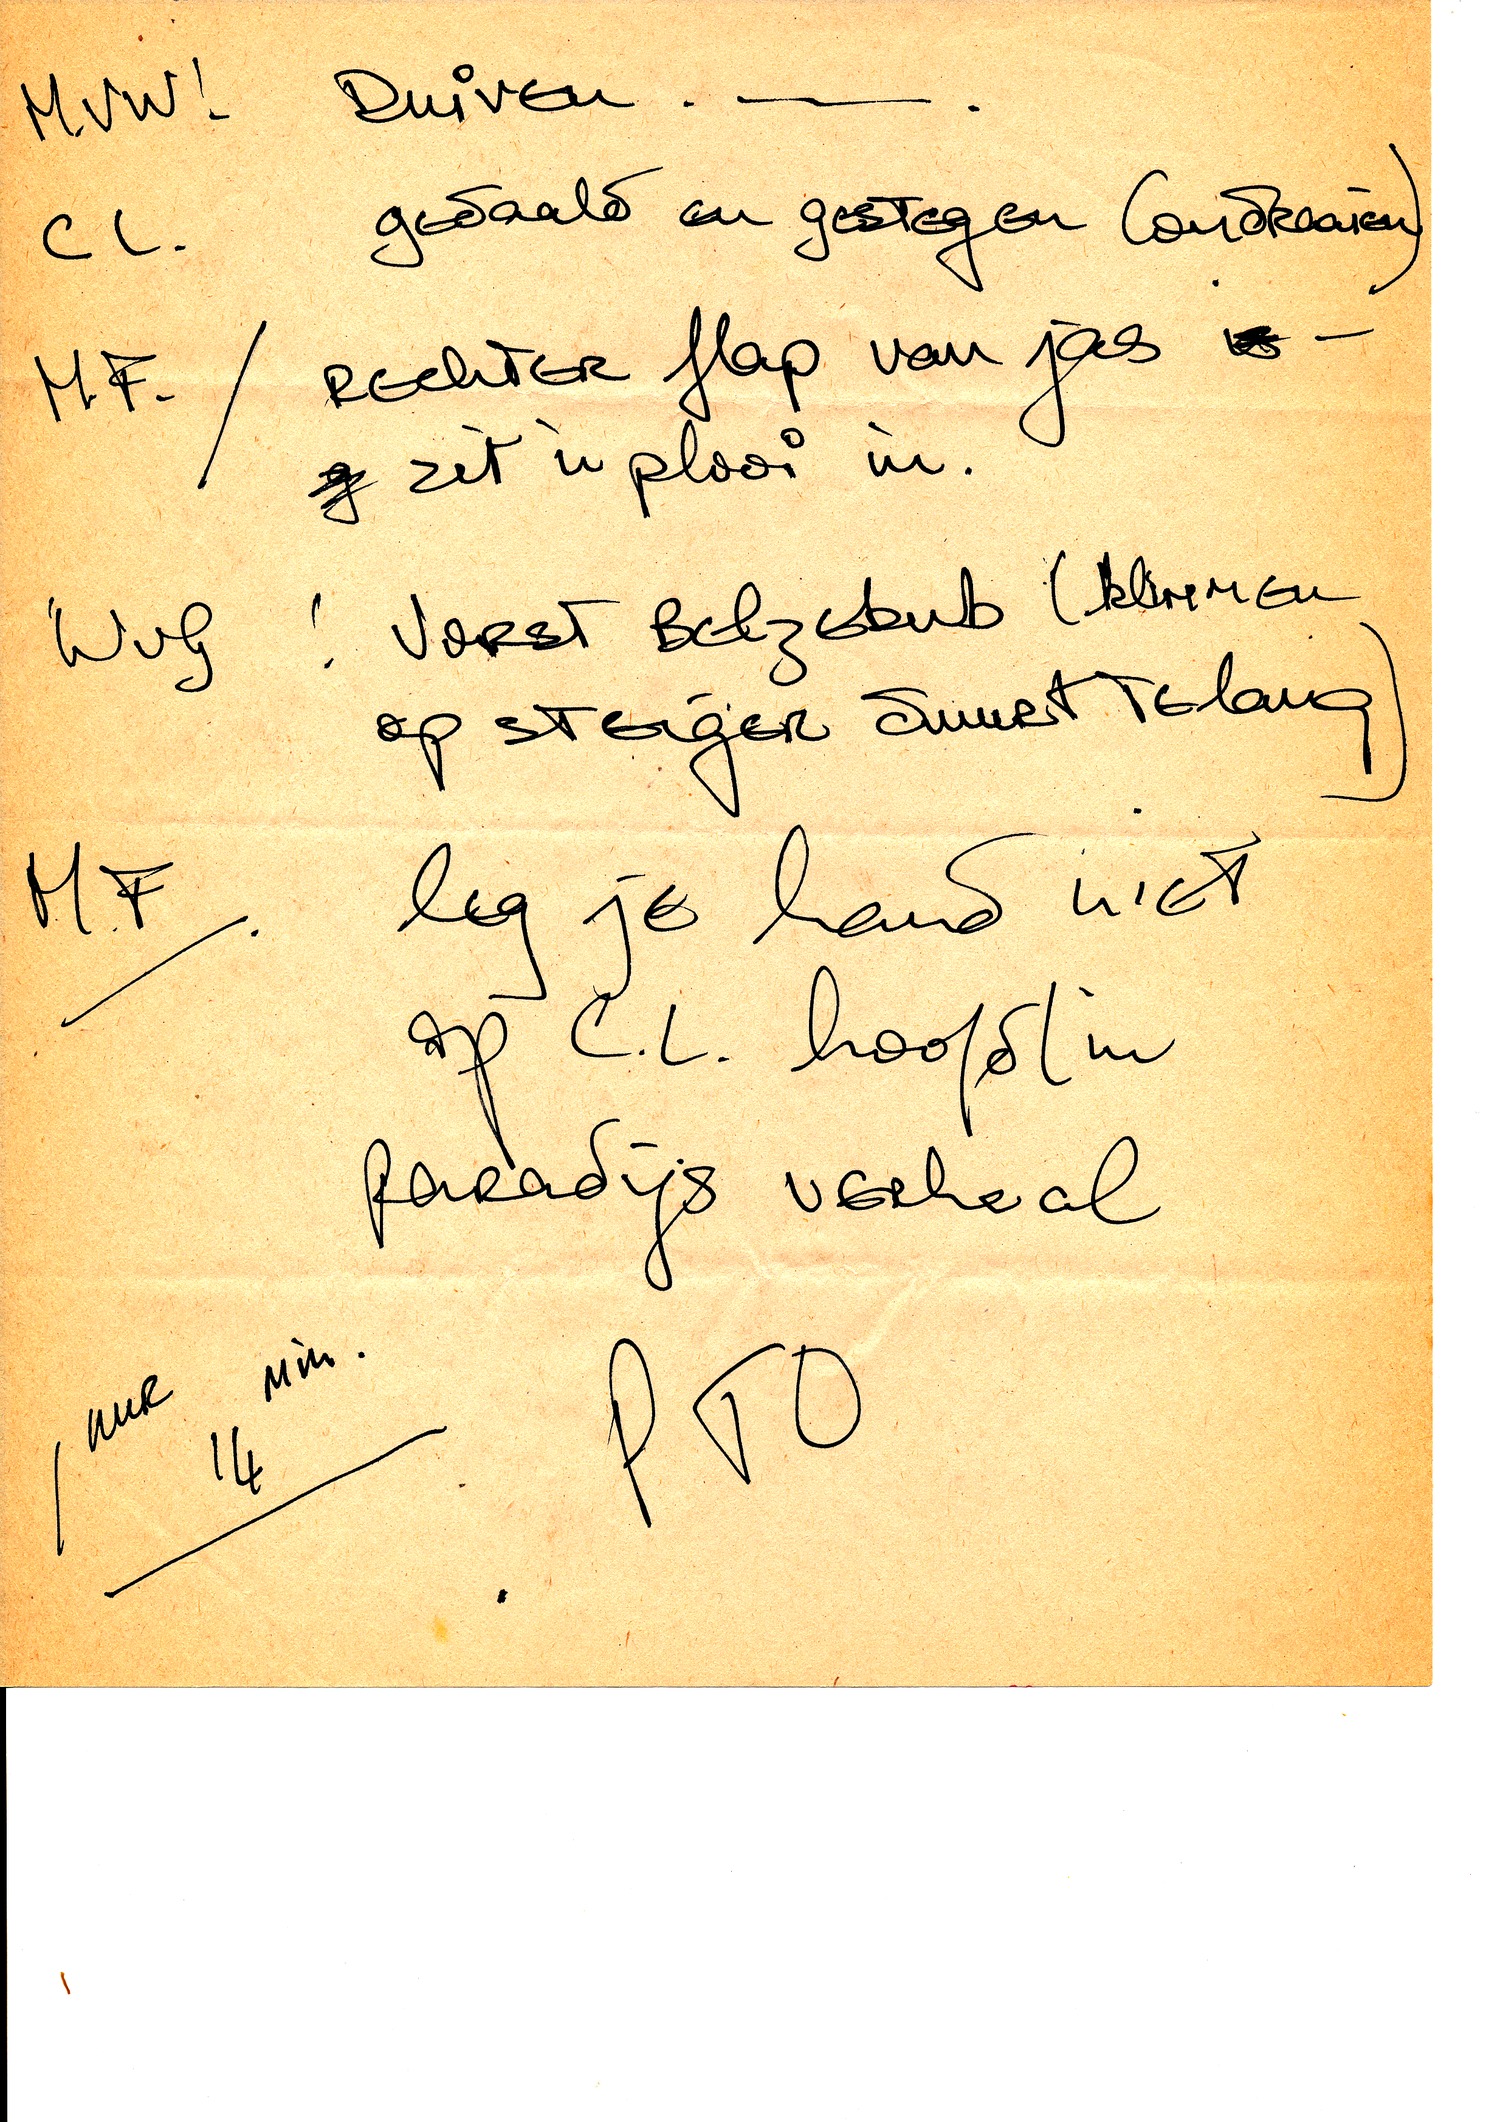 M.VW! Duiven. ——.
C L. gedaald en gestegen (omdraaien)
M.F. / Rechter flap van jas —
zit 'n plooi in.
WvG ! Vorst Belzebub (klimmen
op steiger duurt te lang)
M.F. leg je hand niet
op C.L. hoofd/in
paradijs verhaal
1 uur 14 min.
PTO